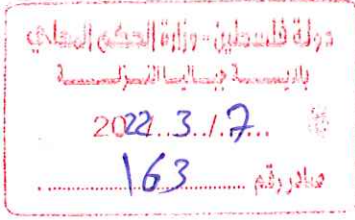 دولة فلسطين - وزارة الحكم المحلي
بلديـــة جبـــاليا النـــزلـــة
2022..3../.7...
صادر رقم ....163....